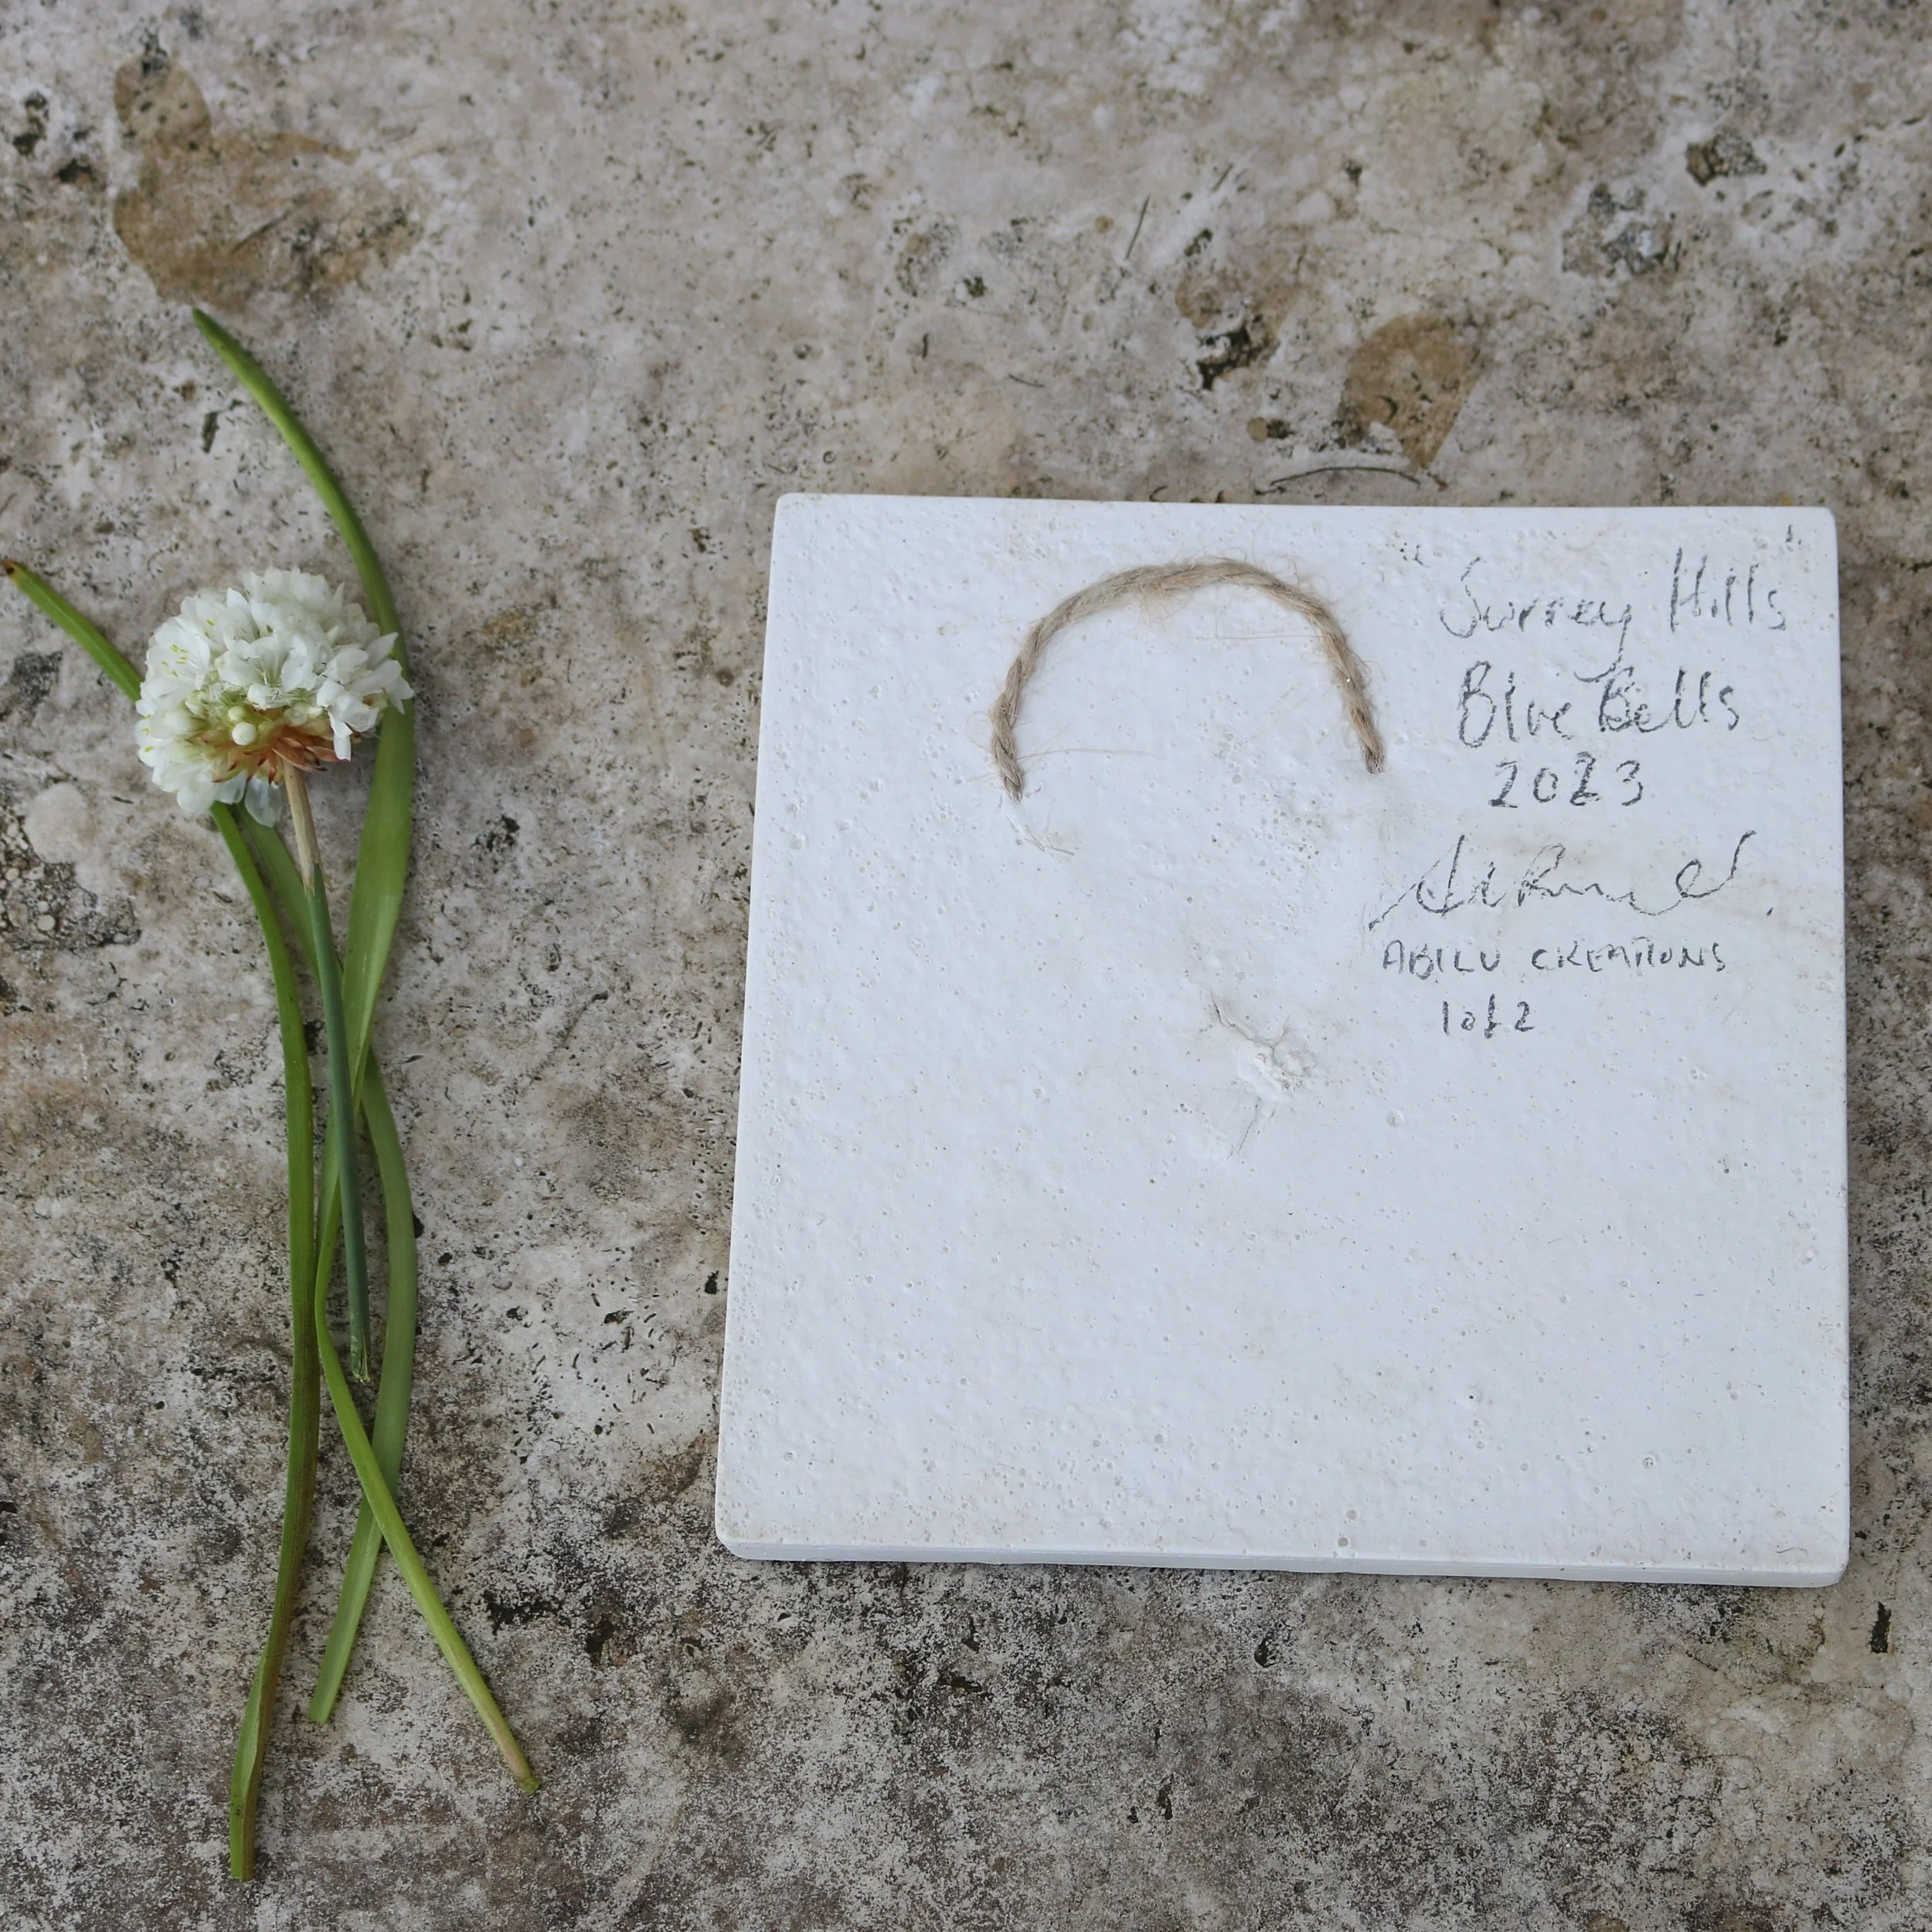 "Surrey Hills"
Blue Bells
2023
ABILU CREATIONS
1 of 2